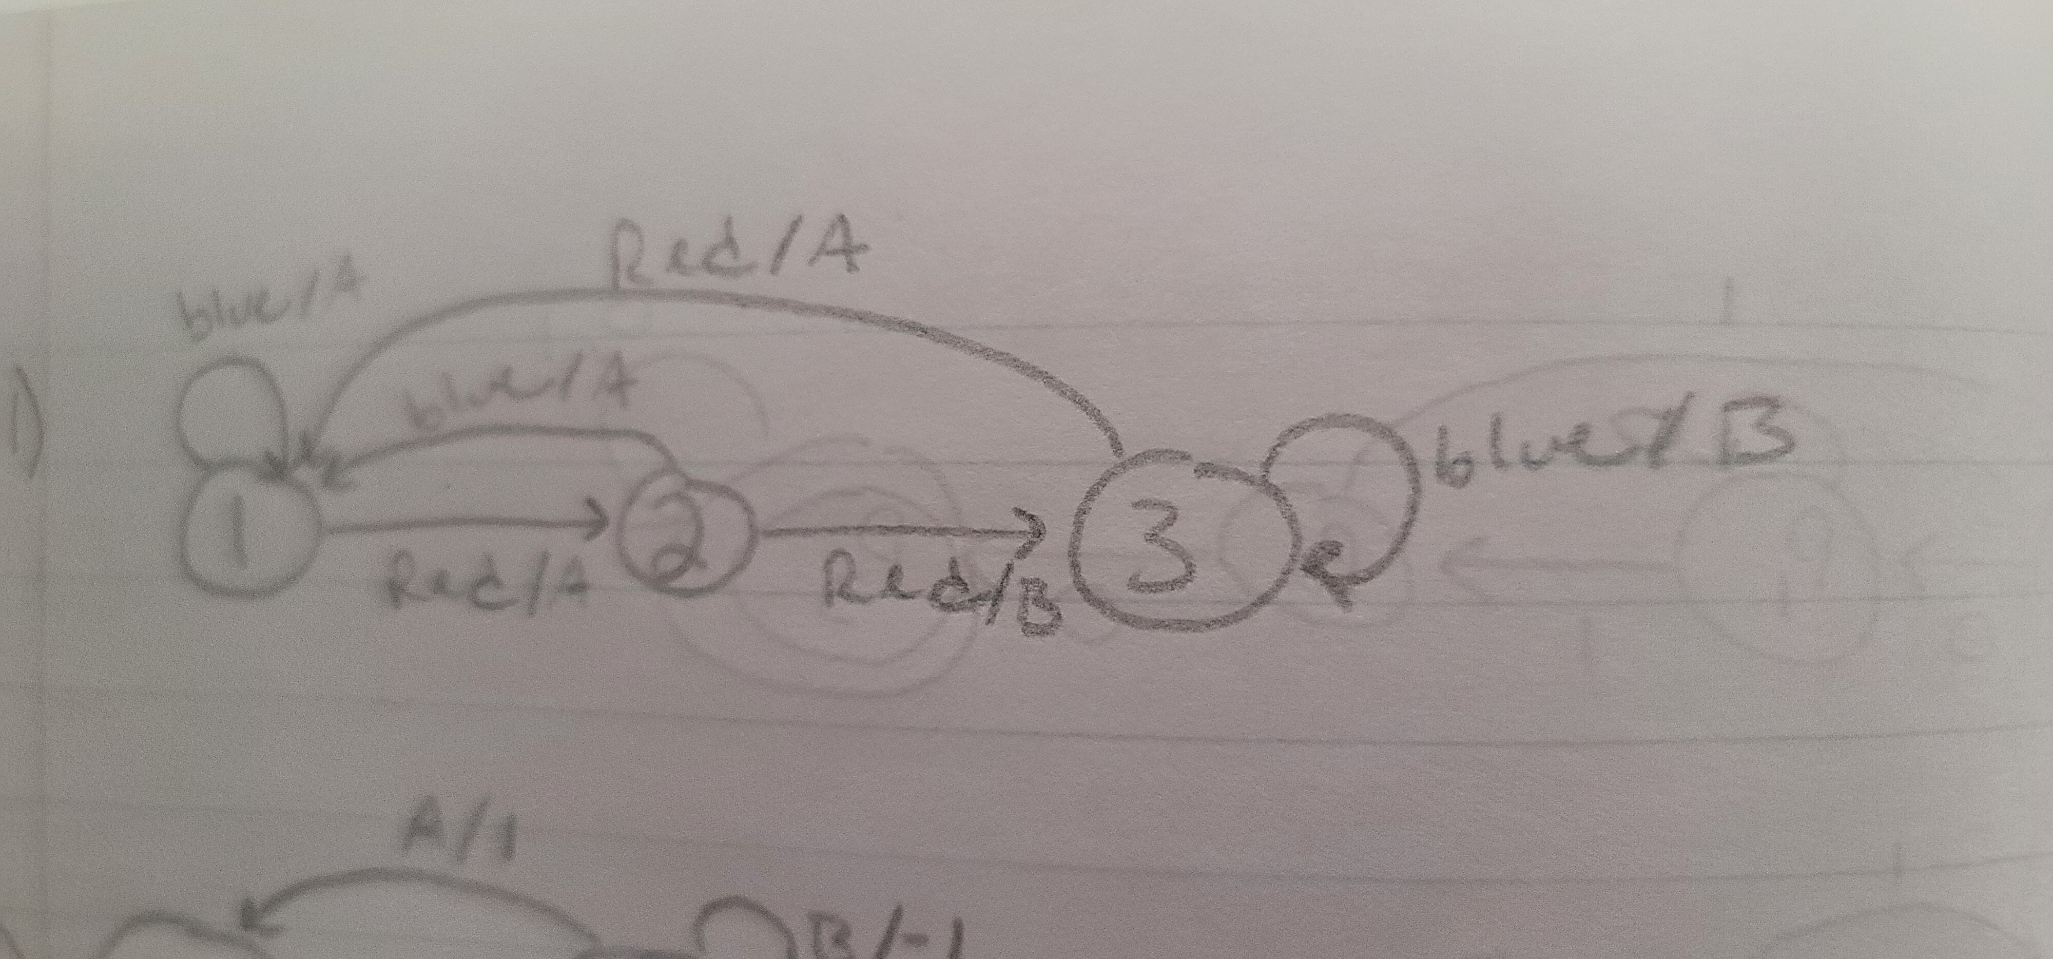 1)
blue/A
Red/A
blue/A
1
Red/A
2
Red/B
3
blue/B
A/1
B/-1